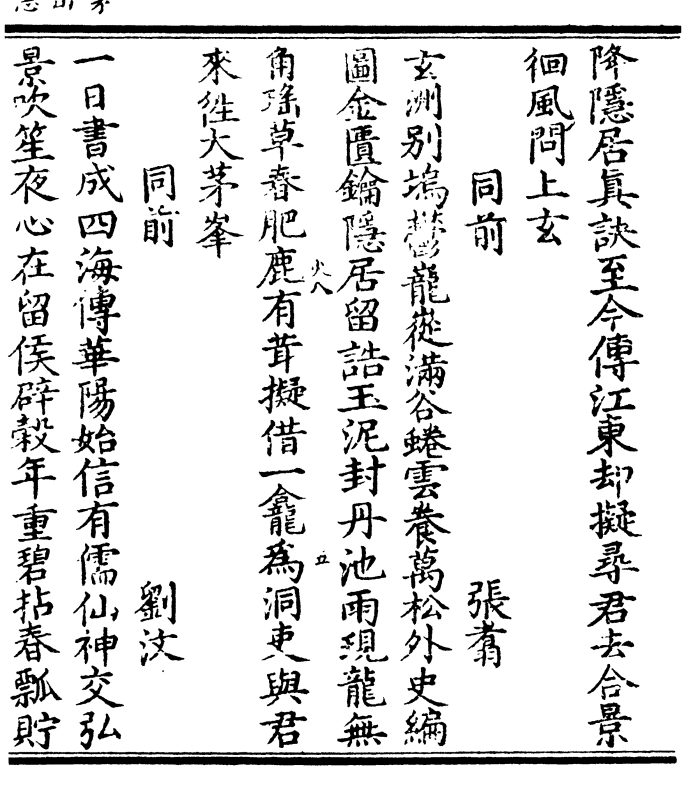 降隱居眞訣至今傳江東却擬尋君去合景
徊風問上玄
同前　張翥
玄洲別塢鬱巃嵸滿谷蜷雲養萬松外史編
圖金匱鑰隱居留誥玉泥封丹池雨現龍無
角瑤草春肥鹿有茸擬借一龕爲洞吏與君
來徃大茅峯
火八
五
同前　劉汶
一日書成四海傳華陽始信有儒仙神交弘
景吹笙夜心在留侯辟穀年重碧拈春瓢貯